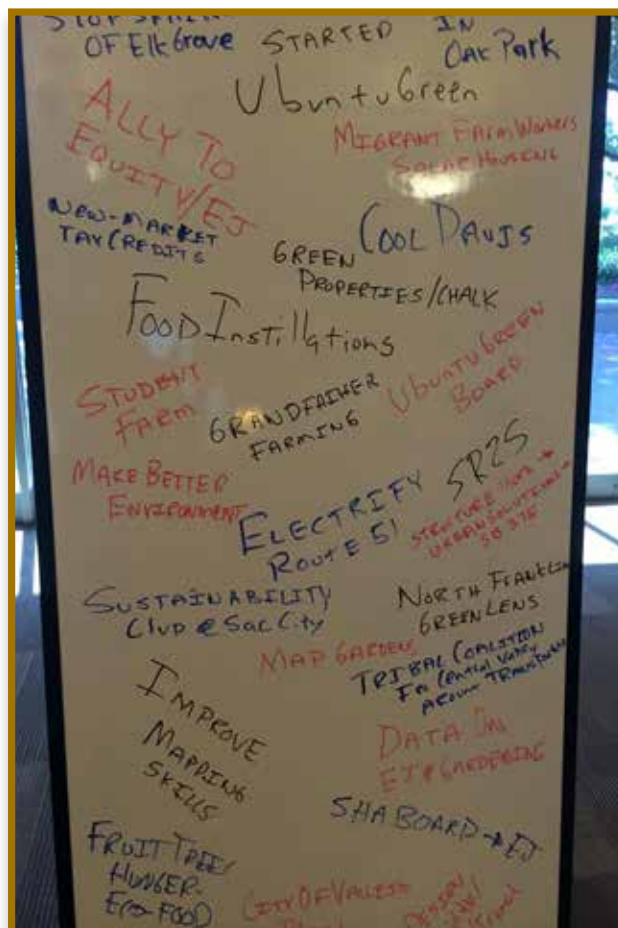 OF Elk Grove
STARTED
IN
Oak Park
Ubuntu Green
ALLY TO
EQUITY/EJ
MIGRANT FARM WORKERS
SOLAR HOUSING
NEW-MARKET
TAX CREDITS
COOL DAVIS
GREEN
PROPERTIES/CHALK
Food Instillations
STUDENT
FARM
GRANDFATHER
FARMING
UBUNTU GREEN
BOARD
MAKE BETTER
ENVIRONMENT
ELECTRIFY
ROUTE 51
SR2S
URBAN SOLUTIONS
SUSTAINABILITY
Club @ Sac City
NORTH FRANKLIN
GREEN LENS
MAP GARDENS
TRIBAL COALITION
Central Valley
AROUND
IMPROVE
MAPPING
SKILLS
DATA ON
EJ & GARDENING
SHA BOARD → EJ
FRUIT TREE/
HUNGER-
ECO-FOOD
CITY OF VALLEJO
DESIGN